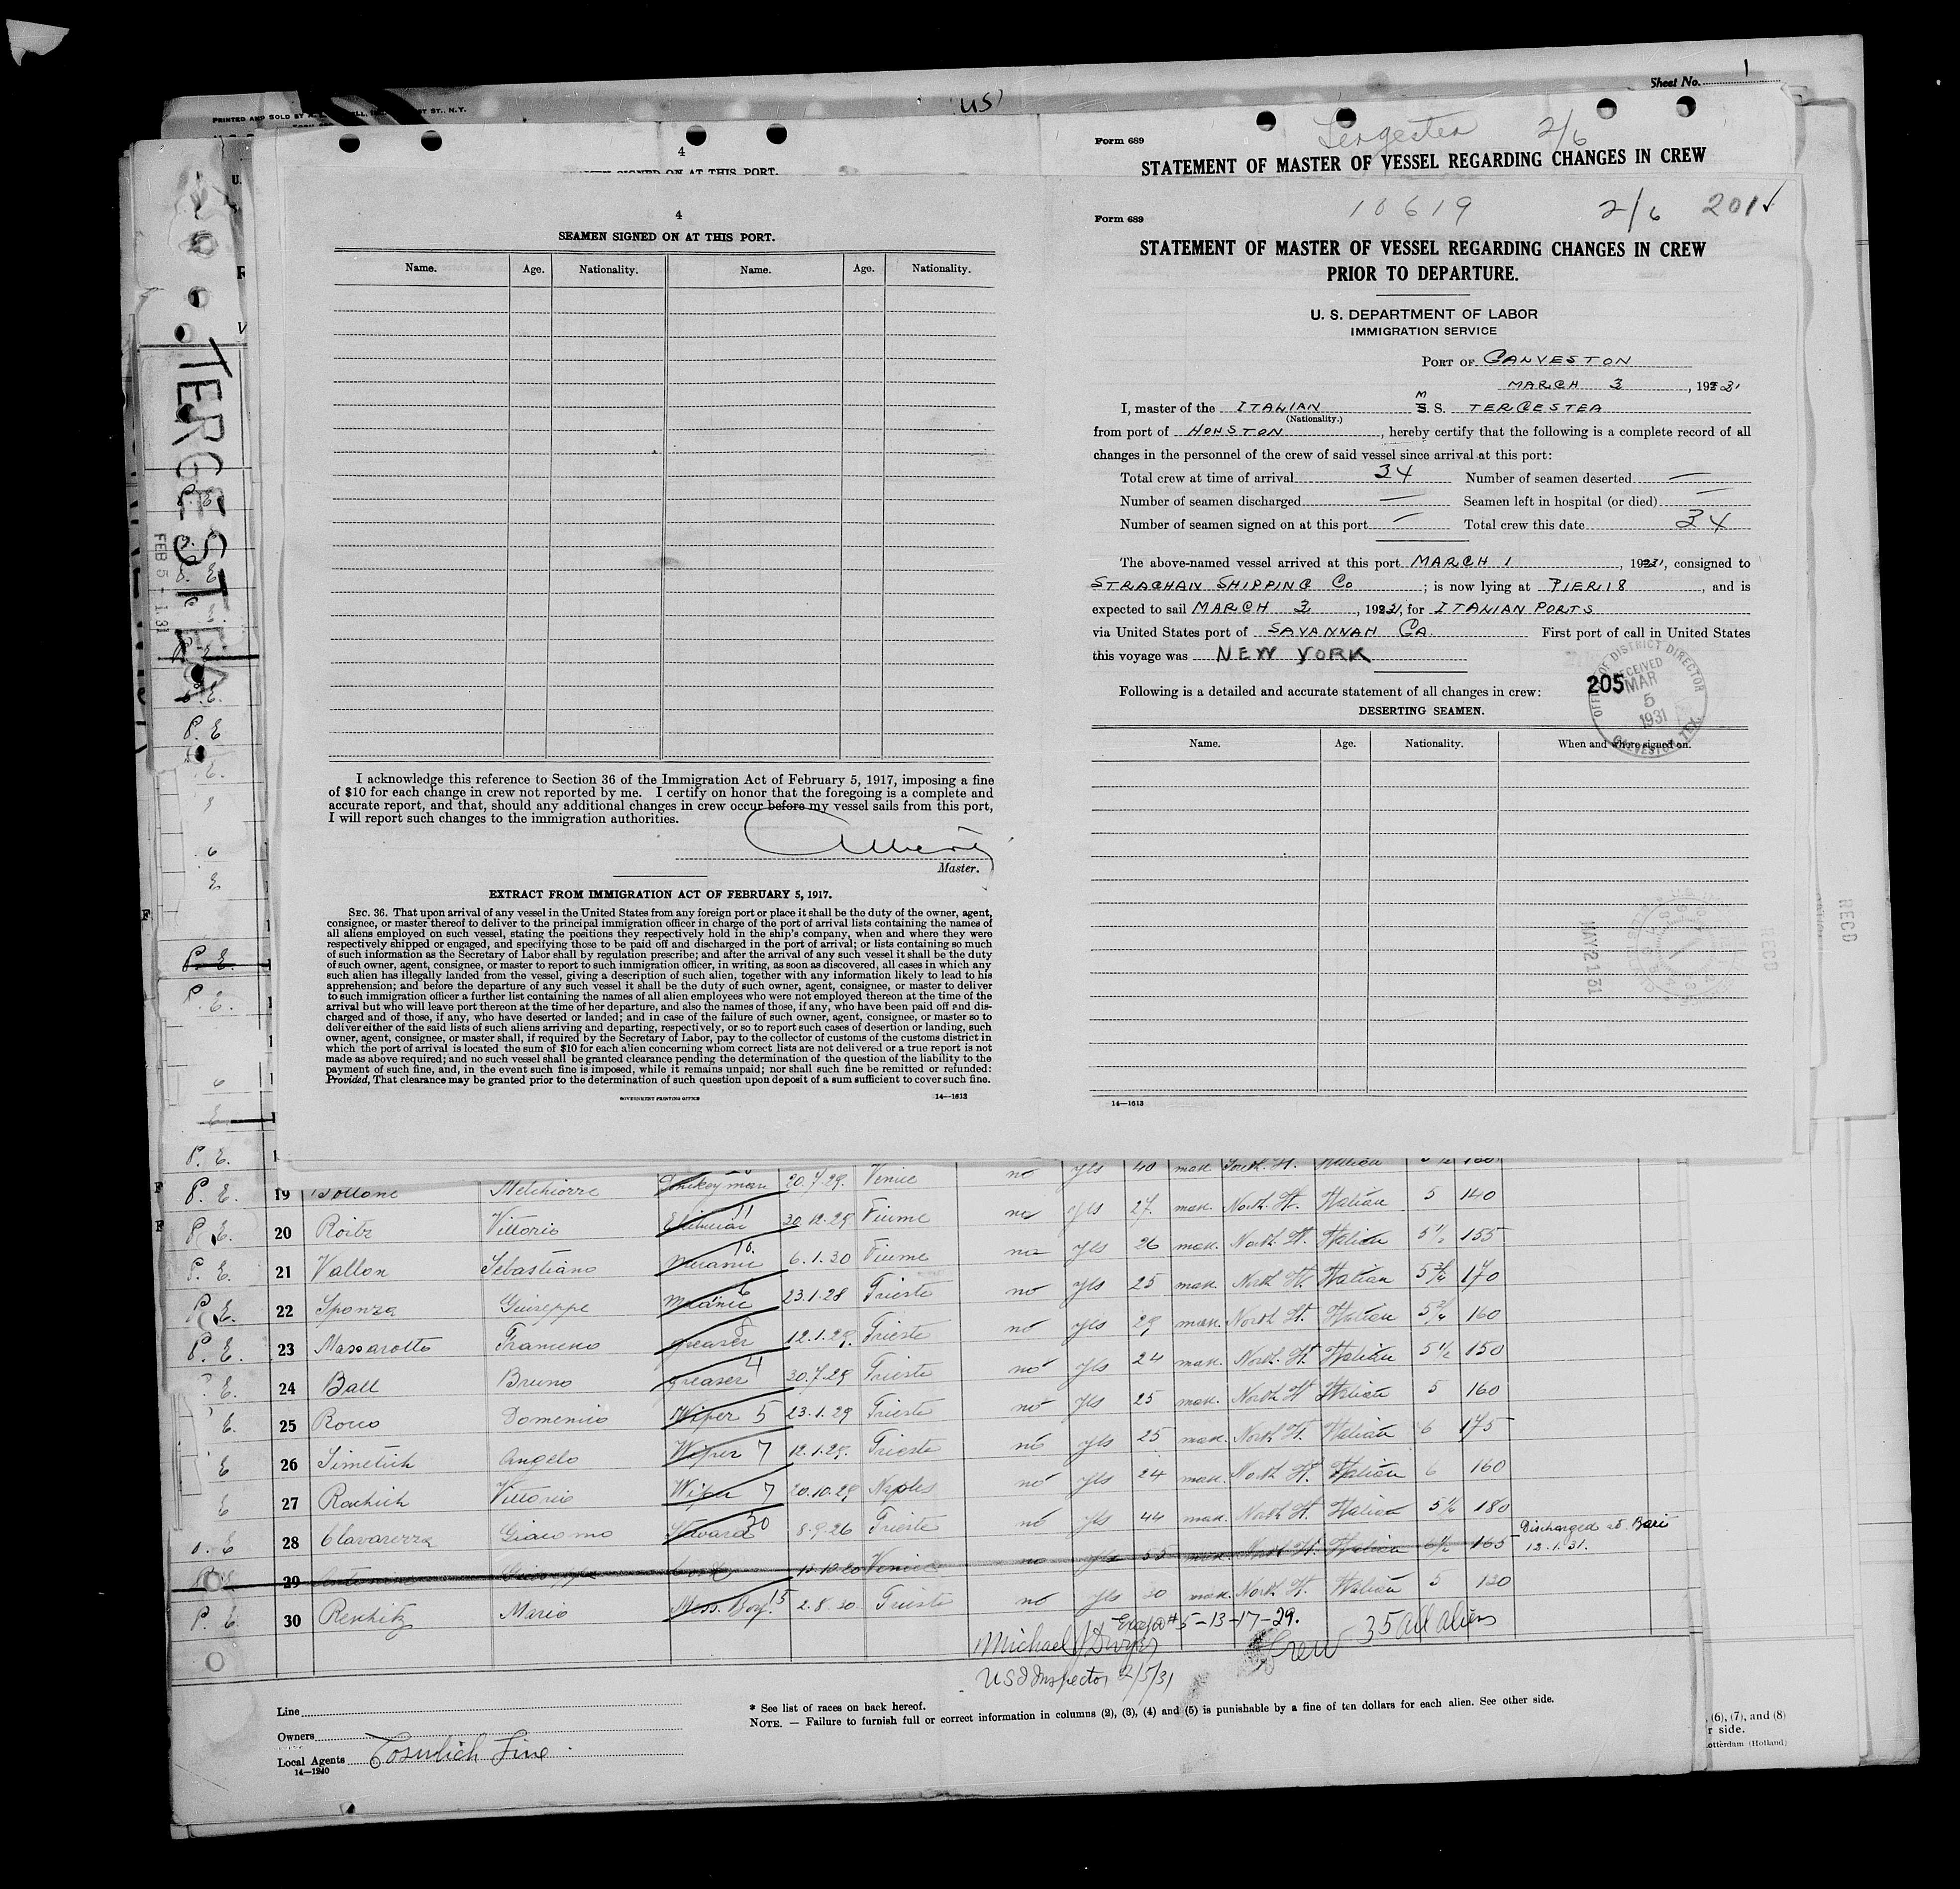 Sheet No. 1
PRINTED AND SOLD BY
ST ST., N.Y.
US
4
SEAMEN SIGNED ON AT THIS PORT.
Form 689
Tergestea 2/6
STATEMENT OF MASTER OF VESSEL REGARDING CHANGES IN CREW
4
SEAMEN SIGNED ON AT THIS PORT.
Name. Age. Nationality. Name. Age. Nationality.
I acknowledge this reference to Section 36 of the Immigration Act of February 5, 1917, imposing a fine
of $10 for each change in crew not reported by me. I certify on honor that the foregoing is a complete and
accurate report, and that, should any additional changes in crew occur before my vessel sails from this port,
I will report such changes to the immigration authorities.
Master.
EXTRACT FROM IMMIGRATION ACT OF FEBRUARY 5, 1917.
SEC. 36. That upon arrival of any vessel in the United States from any foreign port or place it shall be the duty of the owner, agent,
consignee, or master thereof to deliver to the principal immigration officer in charge of the port of arrival lists containing the names of
all aliens employed on such vessel, stating the positions they respectively hold in the ship's company, when and where they were
respectively shipped or engaged, and specifying those to be paid off and discharged in the port of arrival; or lists containing so much
of such information as the Secretary of Labor shall by regulation prescribe; and after the arrival of any such vessel it shall be the duty
of such owner, agent, consignee, or master to report to such immigration officer, in writing, as soon as discovered, all cases in which any
such alien has illegally landed from the vessel, giving a description of such alien, together with any information likely to lead to his
apprehension; and before the departure of any such vessel it shall be the duty of such owner, agent, consignee, or master to deliver
to such immigration officer a further list containing the names of all alien employees who were not employed thereon at the time of the
arrival but who will leave port thereon at the time of her departure, and also the names of those, if any, who have been paid off and dis-
charged and of those, if any, who have deserted or landed; and in case of the failure of such owner, agent, consignee, or master so to
deliver either of the said lists of such aliens arriving and departing, respectively, or so to report such cases of desertion or landing, such
owner, agent, consignee, or master shall, if required by the Secretary of Labor, pay to the collector of customs of the customs district in
which the port of arrival is located the sum of $10 for each alien concerning whom correct lists are not delivered or a true report is not
made as above required; and no such vessel shall be granted clearance pending the determination of the question of the liability to the
payment of such fine, and, in the event such fine is imposed, while it remains unpaid; nor shall such fine be remitted or refunded:
Provided, That clearance may be granted prior to the determination of such question upon deposit of a sum sufficient to cover such fine.
GOVERNMENT PRINTING OFFICE 14—1613
10619 2/6 201
Form 689
STATEMENT OF MASTER OF VESSEL REGARDING CHANGES IN CREW
PRIOR TO DEPARTURE.
U. S. DEPARTMENT OF LABOR
IMMIGRATION SERVICE
PORT OF GALVESTON
MARCH 3, 1931
I, master of the ITALIAN M S. TERGESTEA
(Nationality.)
from port of HOUSTON, hereby certify that the following is a complete record of all
changes in the personnel of the crew of said vessel since arrival at this port:
Total crew at time of arrival 34 Number of seamen deserted —
Number of seamen discharged — Seamen left in hospital (or died) —
Number of seamen signed on at this port — Total crew this date 34
The above-named vessel arrived at this port MARCH 1, 1931, consigned to
STRACHAN SHIPPING Co; is now lying at PIER 18, and is
expected to sail MARCH 3, 1931, for ITALIAN PORTS
via United States port of SAVANNAH GA. First port of call in United States
this voyage was NEW YORK
OFFICE OF DISTRICT DIRECTOR
RECEIVED
205 MAR
5
1931
GALVESTON, TEX.
Following is a detailed and accurate statement of all changes in crew:
DESERTING SEAMEN.
Name. Age. Nationality. When and where signed on.
MAY 21 31
REC'D
REC'D
14—1613
TERGESTEA
FEB 5 - 1931
P. E. 19 Bollone Melchiorre Donkeyman 20.7.29. Venice no yes 40 mak. South. It. Italian
P. E. 20 Roitz Vittorio 11 30.12.29 Fiume no yes 27 mak. North. It. Italian 5 140
P. E. 21 Vallon Sebastiano 10 6.1.30 Fiume no yes 26 mak. North. It. Italian 5 1/2 155
P. E. 22 Sponza Giuseppe 6 23.1.28 Trieste no yes 25 mak. North It. Italian 5 3/4 170
P. E. 23 Massarotto Francesco greaser 8 12.1.29. Trieste no yes 29 mak. North It. Italian 5 3/4 160
E. 24 Ball Bruno greaser 4 30.7.29 Trieste no yes 24 mak. North. It. Italian 5 1/2 150
E. 25 Rocco Domenico Wiper 5 23.1.29 Trieste no yes 25 mak. North It Italian 5 160
E 26 Simetich Angelo Wiper 7 12.1.29. Trieste no yes 25 mak. North It. Italian 6 175
E 27 Rachich Vittorio Wiper 7 20.10.29 Naples no yes 24 mak. North It. Italian 6 160
E 28 Clavarezza Giacomo Steward 30 8.9.26 Trieste no yes 44 mak. North It. Italian 5 1/2 180
29 Antonini Giuseppe Cook Venice no yes 53 mak. North It. Italian 6 1/2 165 Discharged at Bari
12.1.31.
P. E 30 Reschitz Mario Mess. Boy. 15 2.8.30. Trieste no yes 30 mak. North It. Italian 5 130
Except # 5-13-17-29.
Michael J Dwyer Crew 35 all aliens
US Inspector 2/5/31
Line
Owners
Local Agents Cosulich Line
14—1240
* See list of races on back hereof.
NOTE. — Failure to furnish full or correct information in columns (2), (3), (4) and (5) is punishable by a fine of ten dollars for each alien. See other side.
, (6), (7), and (8)
r side.
otterdam (Holland)